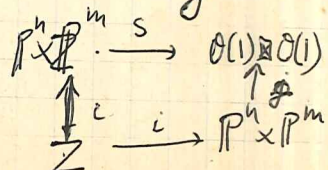 ℙⁿ×ℙᵐ. —s→ O(1)⊠O(1)
↕ i ↑
Z —i→ ℙⁿ×ℙᵐ